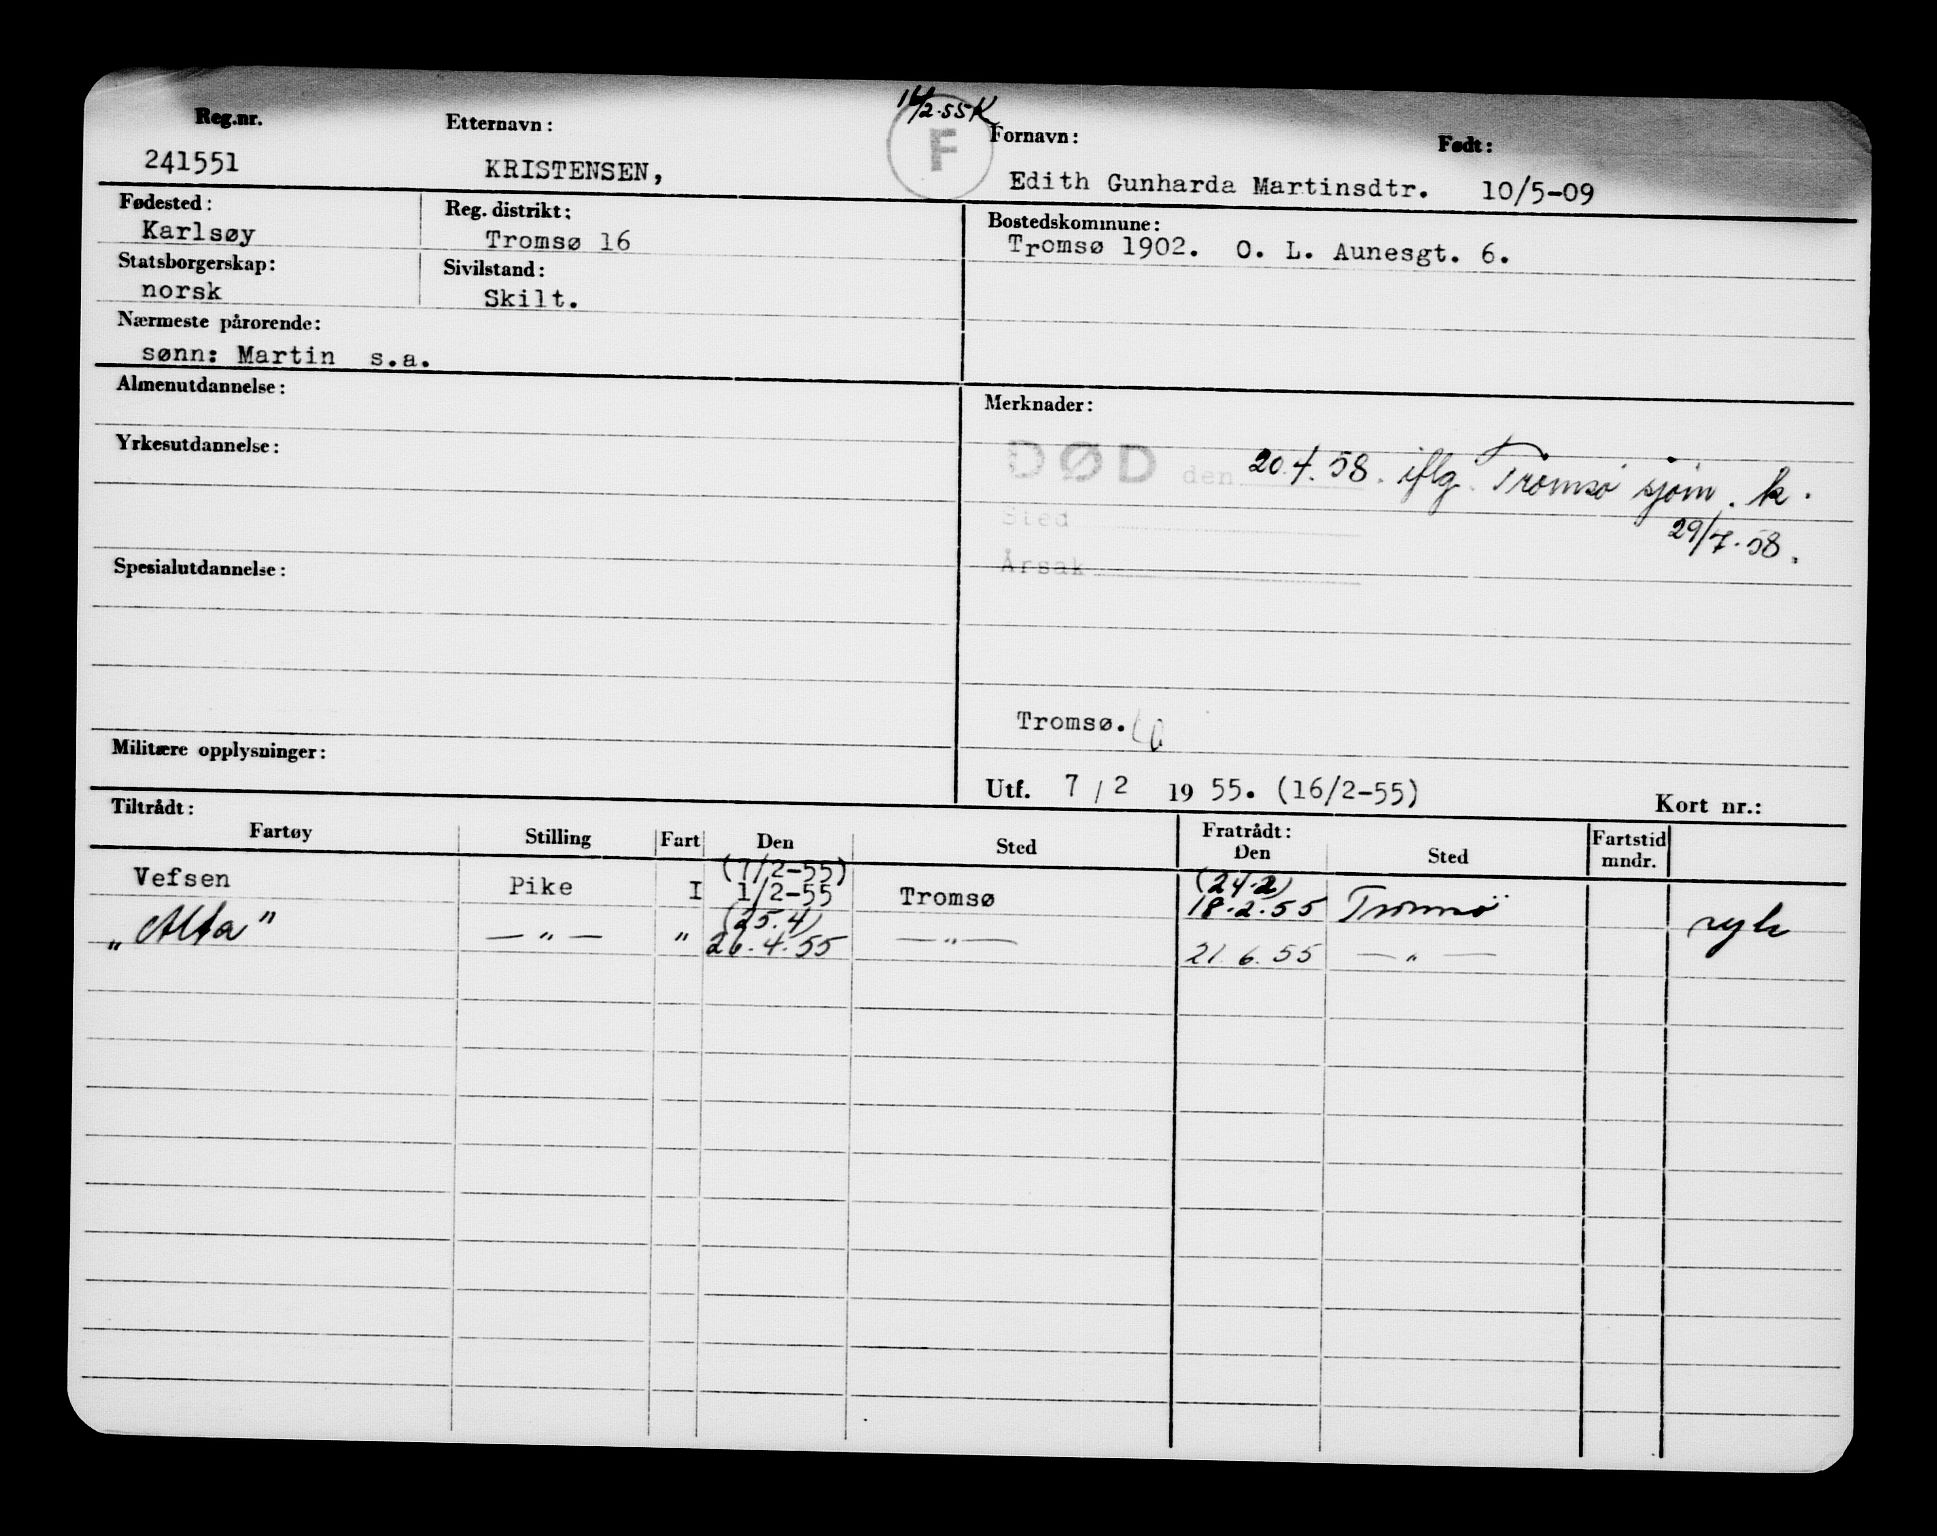 16/2-55 K
F
Reg.nr. Etternavn: Fornavn: Født:
241551 KRISTENSEN, Edith Gunharda Martinsdtr. 10/5-09
Fødested: Reg. distrikt: Bostedskommune:
Karlsøy Tromsø 16 Tromsø 1902. O. L. Aunesgt. 6.
Statsborgerskap: Sivilstand:
norsk Skilt.
Nærmeste pårørende:
sønn: Martin s.a.
Almenutdannelse: Merknader:
Yrkesutdannelse:
DØD den 20.4.58. iflg. Tromsø sjøm. k.
Sted 29/7.58.
Årsak
Spesialutdannelse:
Tromsø.
Militære opplysninger:
Utf. 7/2 1955. (16/2-55) Kort nr.:
Tiltrådt: Fratrådt:
Fartøy Stilling Fart Den Sted Den Sted Fartstid mndr.
(7/2-55) (24.2)
Vefsen Pike I 1/2-55 Tromsø 18.2.55 Tromsø
(25.4)
"Alta" — " — " 26.4.55 — " — 21.6.55 — " — syk